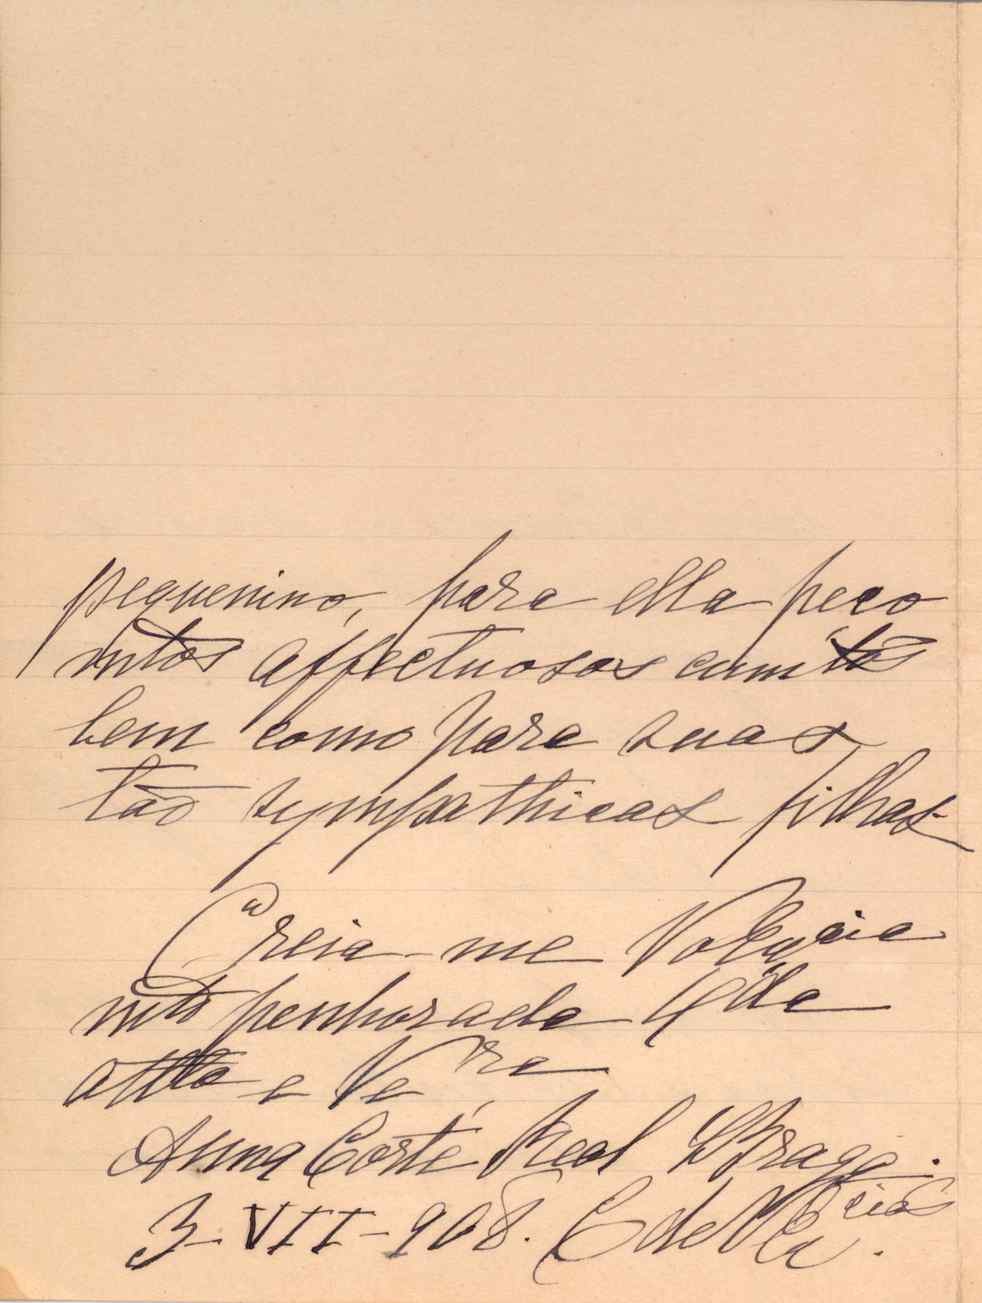 pequenino, para ella peço
mtos affectuosos cumtos
bem como para suas
tão sympathicas filhas.
Creia-me V Excia
mto penhorada
atta e Ve ra
Anna Corte Real Braga.
3-VII-908. C de V Excias